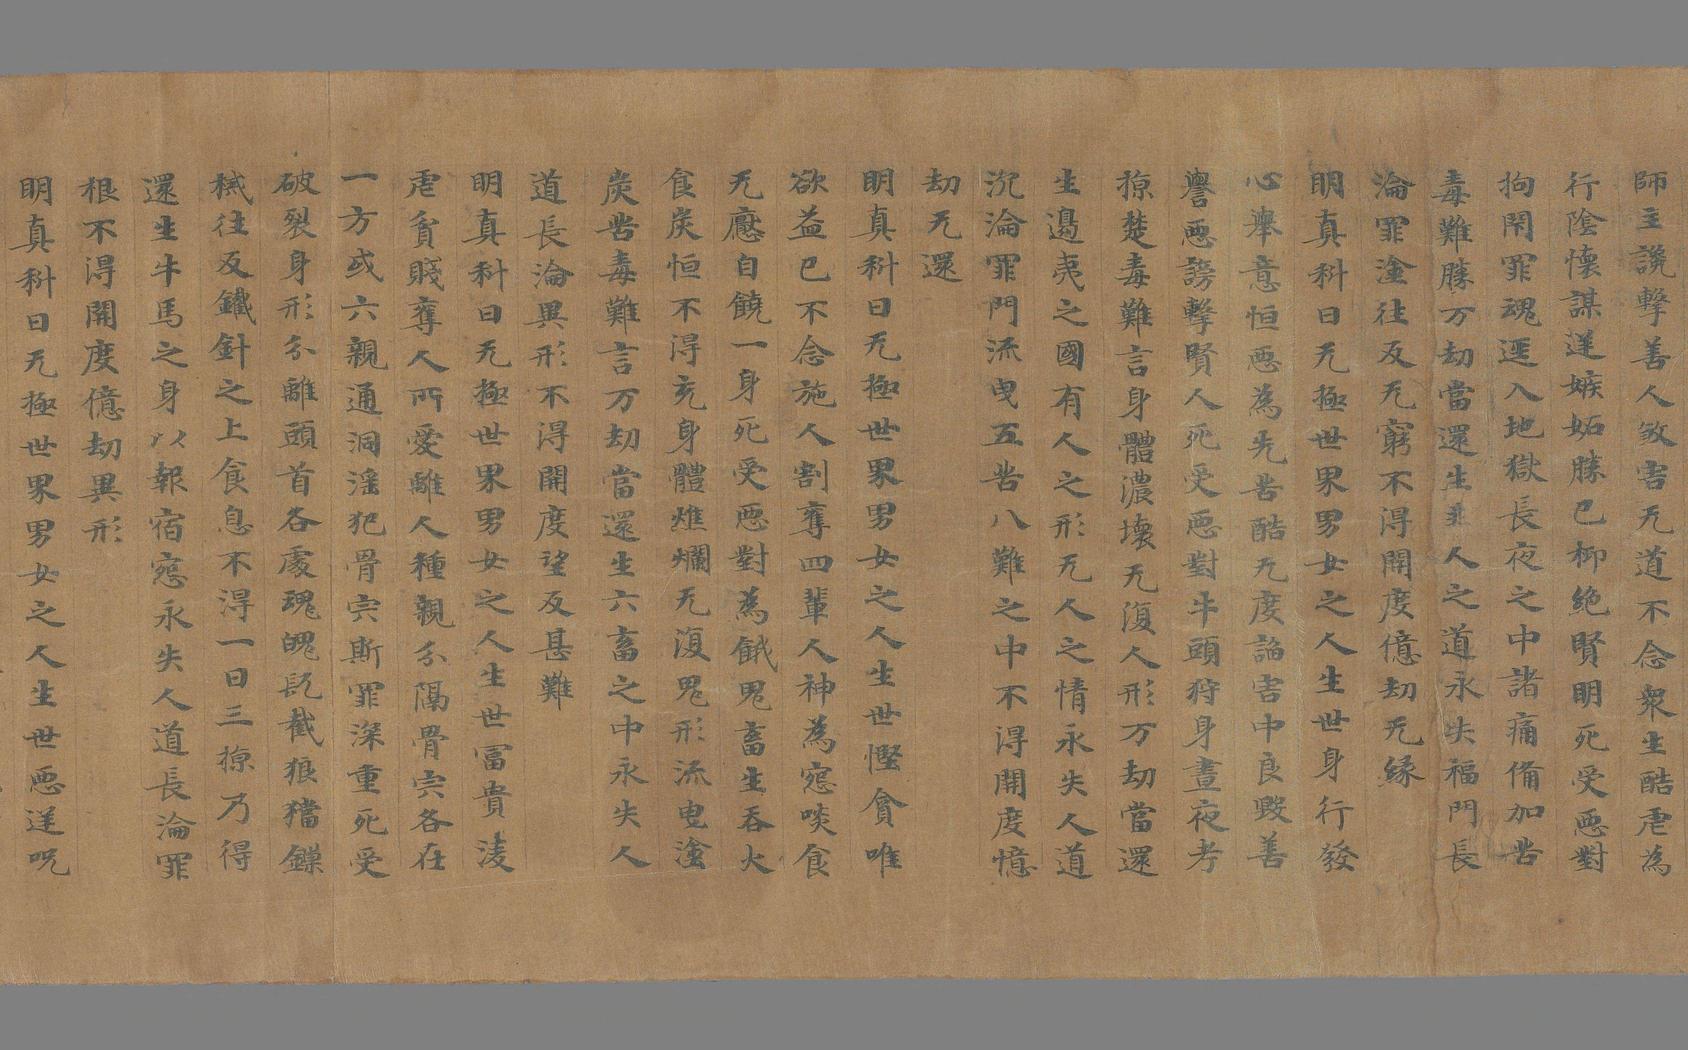 師主讒擊善人煞害无道不念衆生酷虐為
行陰懷謀逆嫉妬勝己抑絶賢明死受惡對
拘閇罪魂逕入地獄長夜之中諸痛備加苦
毒難勝万劫當還生非人之道永失福門長
淪罪塗往反无窮不得開度億劫无緣
明真科曰无極世界男女之人生世身行發
心舉意恒惡為先苦酷无度諂害中良毀善
譽惡謗擊賢人死受惡對牛頭狩身晝夜考
掠楚毒難言身體濃壞无復人形万劫當還
生邊夷之國有人之形无人之情永失人道
沉淪罪門流曳五苦八難之中不得開度憶
劫无還
明真科曰无極世界男女之人生世慳貪唯
欲益己不念施人割奪四輩人神為怨啖食
无懕自饒一身死受惡對為餓鬼畜生吞火
食炭恒不得充身體燋爛无復鬼形流曳塗
炭苦毒難言万劫當還生六畜之中永失人
道長淪異形不得開度望反甚難
明真科曰无極世界男女之人生世冨貴淩
虐貧賤奪人所愛離人種親分隔骨宍各在
一方或六親通洞滛犯骨宍斯罪深重死受
破裂身形分離頭首各處魂魄髡截狼猎鏁
械往反鐵針之上食息不得一日三掠乃得
還生牛馬之身以報宿怨永失人道長淪罪
根不得開度億劫異形
明真科曰无極世界男女之人生世惡逆呪